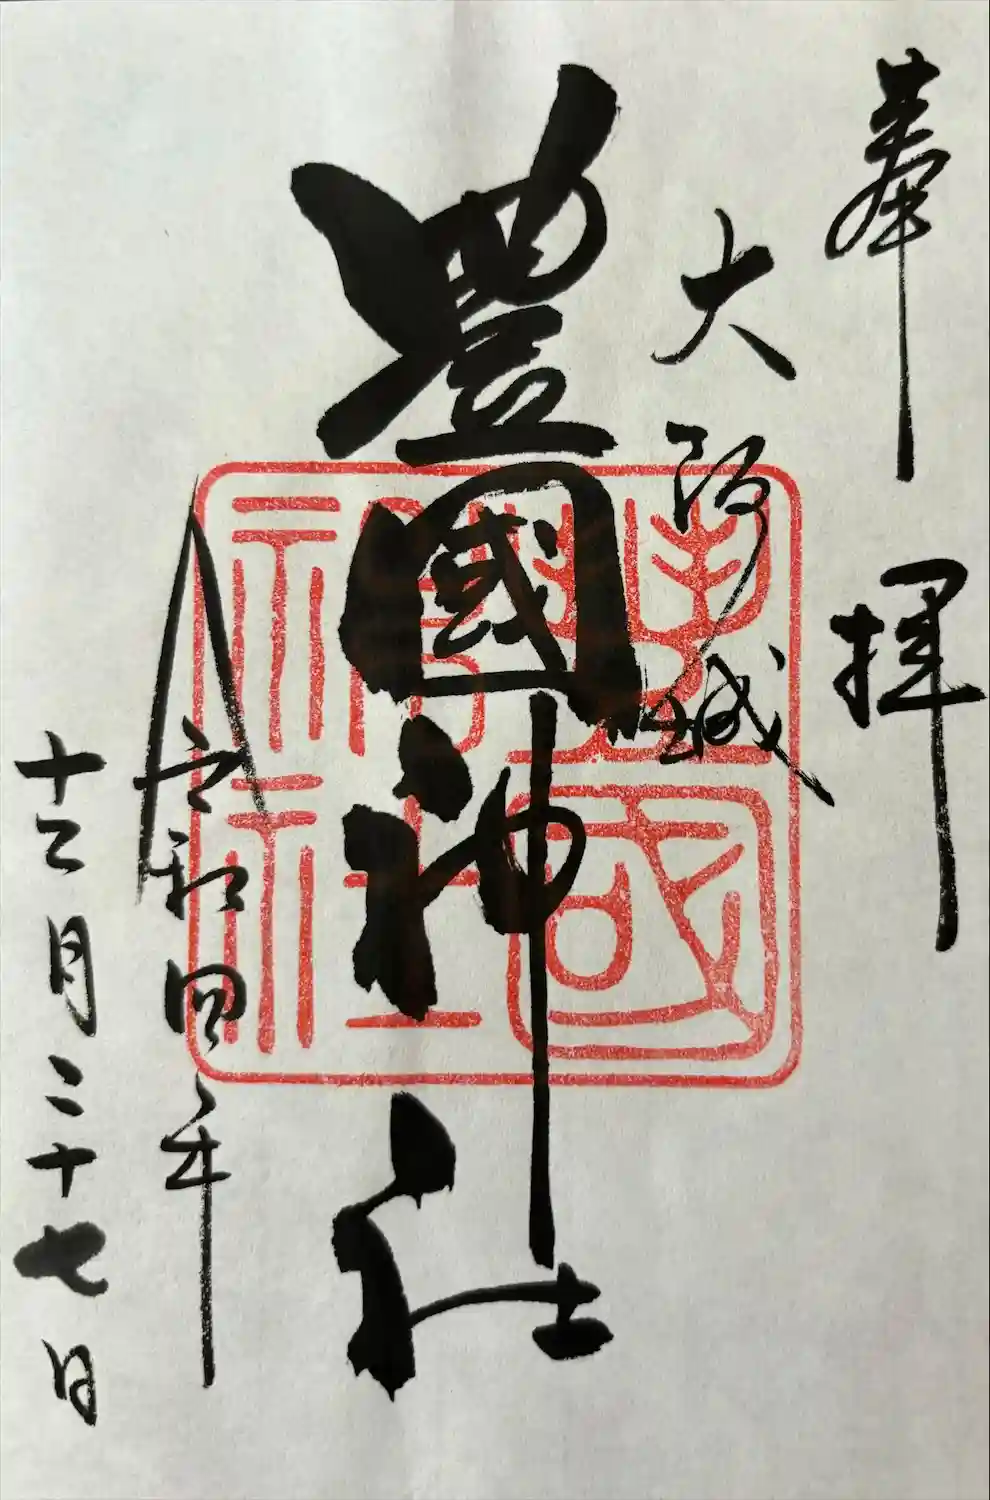 奉拝
大阪城
豊國神社
令和四年
十二月二十七日
豊國
神社